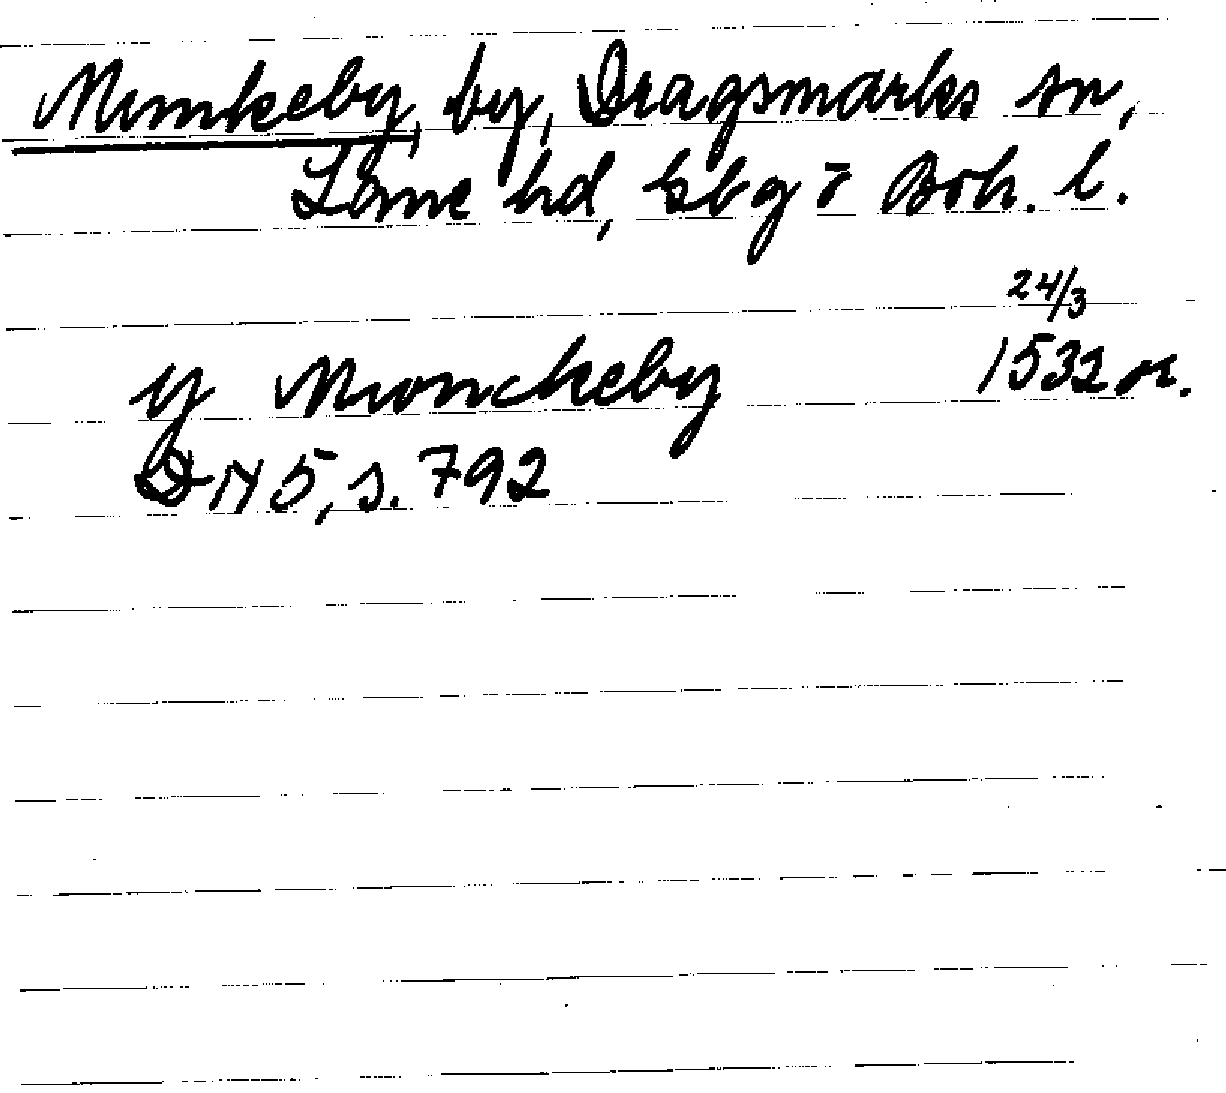 Munkeby, by, Dragsmarks sn,
Lane hd, kbg i Boh. l.
24/3
y Mwnckeby 1532 or.
DN 5, s. 792